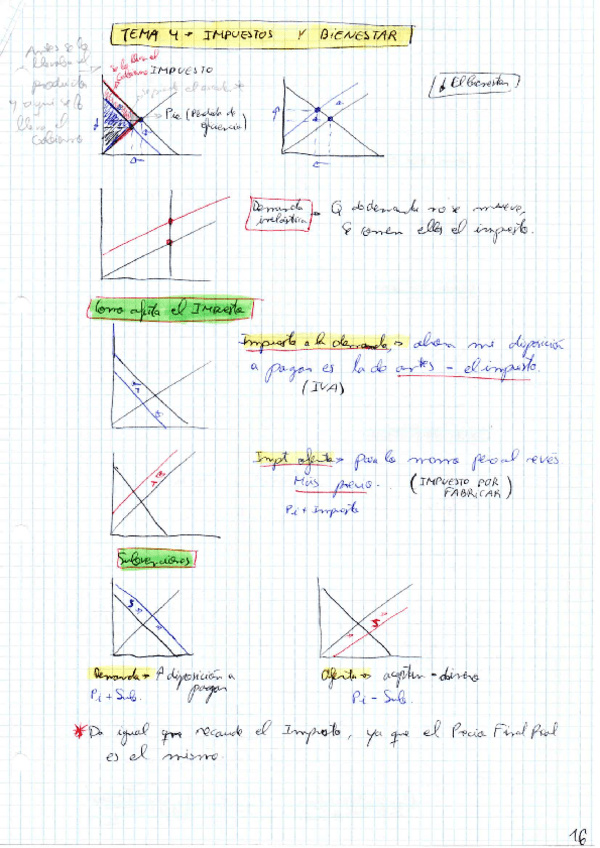 TEMA 4 → IMPUESTOS Y BIENESTAR
Antes se lo
llevaba el
productor
y aquí se lo
lleva el
Gobierno
se lo lleva el
Gobierno
IMPUESTO
Pie (Pérdida de
eficiencia)
↓ El bienestar
Demanda
inelástica
→ Q de demanda no se mueve,
se comen ellos el impuesto.
Como afecta el IMPuesto
Impuesto a la demanda → ahora mi disposición
a pagar es la de antes - el impuesto.
(IVA)
Impt oferta → pasa lo mismo pero al revés.
Más precio.
(IMPUESTO POR
FABRICAR)
Pi + Impuesto
Subvenciones
S
S
Demanda → ↑ disposición a
pagar
Pi + Sub.
Oferta → aceptan - dinero
Pi - Sub.
* Da igual que recaude el Impuesto, ya que el Precio Final Real
es el mismo.
16